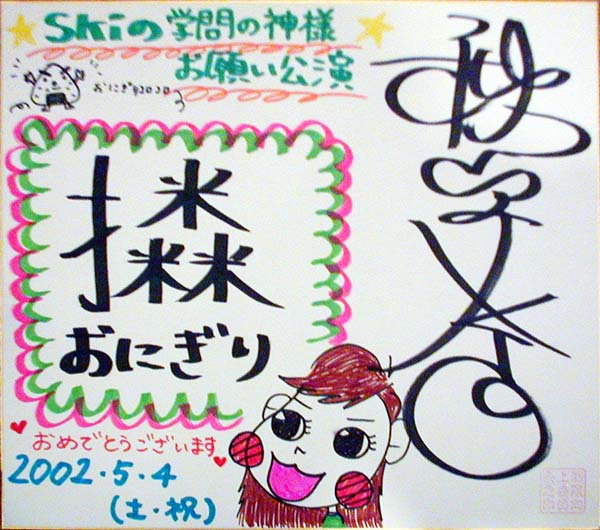 SKiの学問の神様
お願い公演
おにぎりコロコロ
おにぎり
おめでとうございます
2002・5・4
(土・祝)